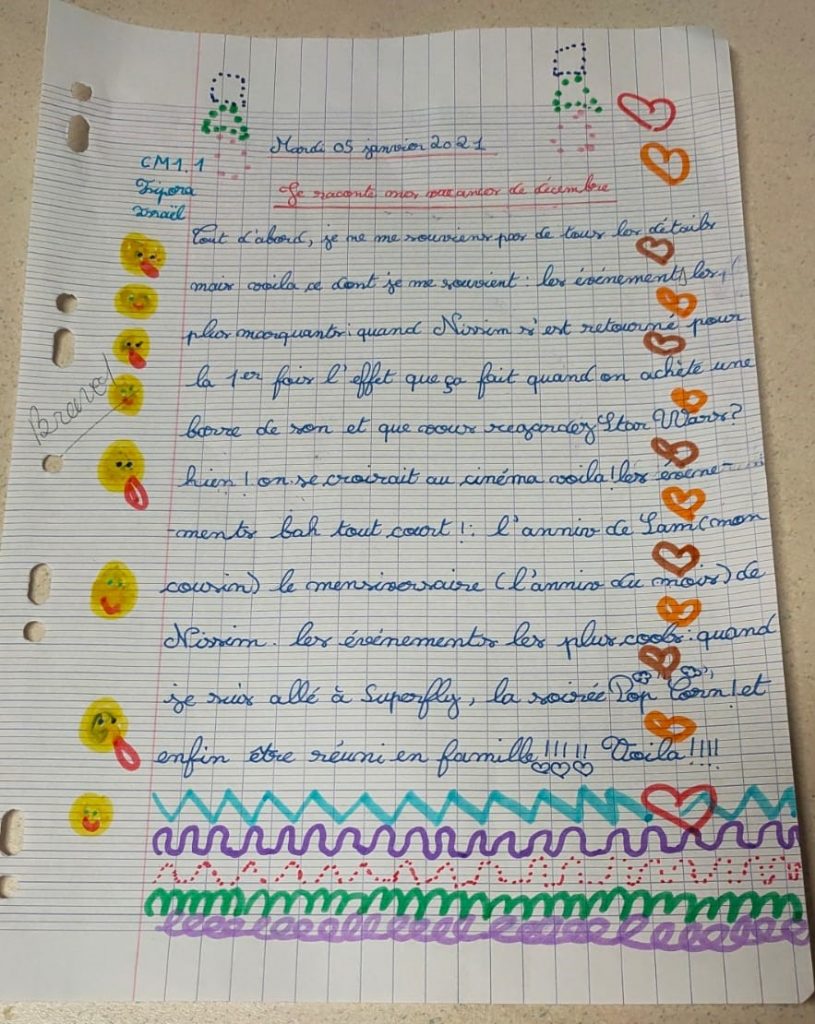 Mardi 05 janvier 2021
CM1.1
Tsipora
Je raconte mes vacances de décembre
Tout d'abord, je me me souviens pas de tous les détails
mais voila ce dont je me souvient : les événements les
plus marquants : quand Nissim s'est retourné pour
la 1er fois l'effet que ça fait quand on achète une
Bravo!
barre de son et que vous regardez Star Wars?
hien ! on se croirait au cinéma voila ! les évène-
-ments bah tout court ! : l'anniv de Sam (mon
cousin) le mensiversaire (l'anniv du mois) de
Nissim. les événements les plus cools : quand
je suis allé à Superfly, la soirée Pop Corn ! et
enfin être réuni en famille !!!!!! Voila !!!!